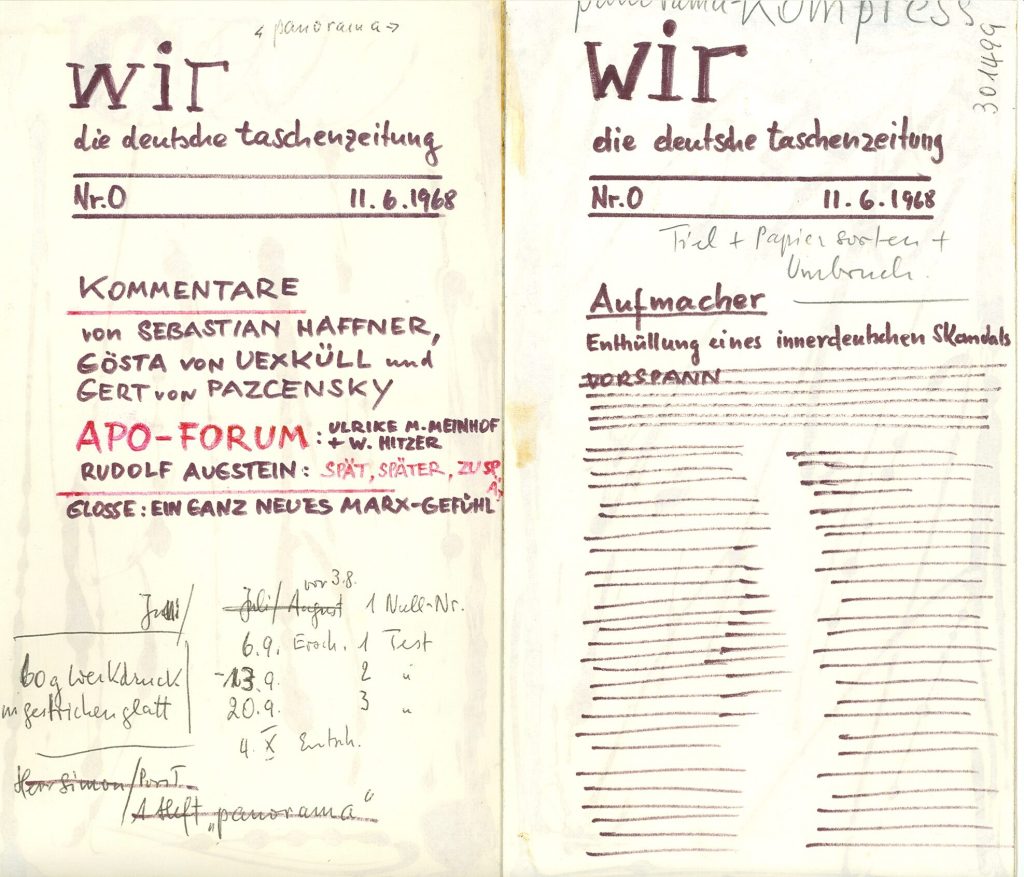 "panorama"
wir
die deutsche taschenzeitung
Nr.0 11.6.1968
KOMMENTARE
von SEBASTIAN HAFFNER,
GÖSTA von UEXKÜLL und
GERT von PAZCENSKY
APO-FORUM: ULRIKE M. MEINHOF
+ W. HITZER
RUDOLF AUGSTEIN: SPÄT, SPÄTER, ZU SP
Ä
GLOSSE: EIN GANZ NEUES MARX-GEFÜHL
vor 3.8.
Juli/August 1 Null-Nr.
6.9. Ersch. 1 Test
13.9. 2 "
20.9. 3 "
4. X Entsch.
60g Werkdruck
glatt
Herr Simon/
1 Heft "panorama"
panorama-Kompress
301499
wir
die deutsche taschenzeitung
Nr.0 11.6.1968
Titel + Papiersorten +
Umbruch.
Aufmacher
Enthüllung eines innerdeutschen Skandals
VORSPANN